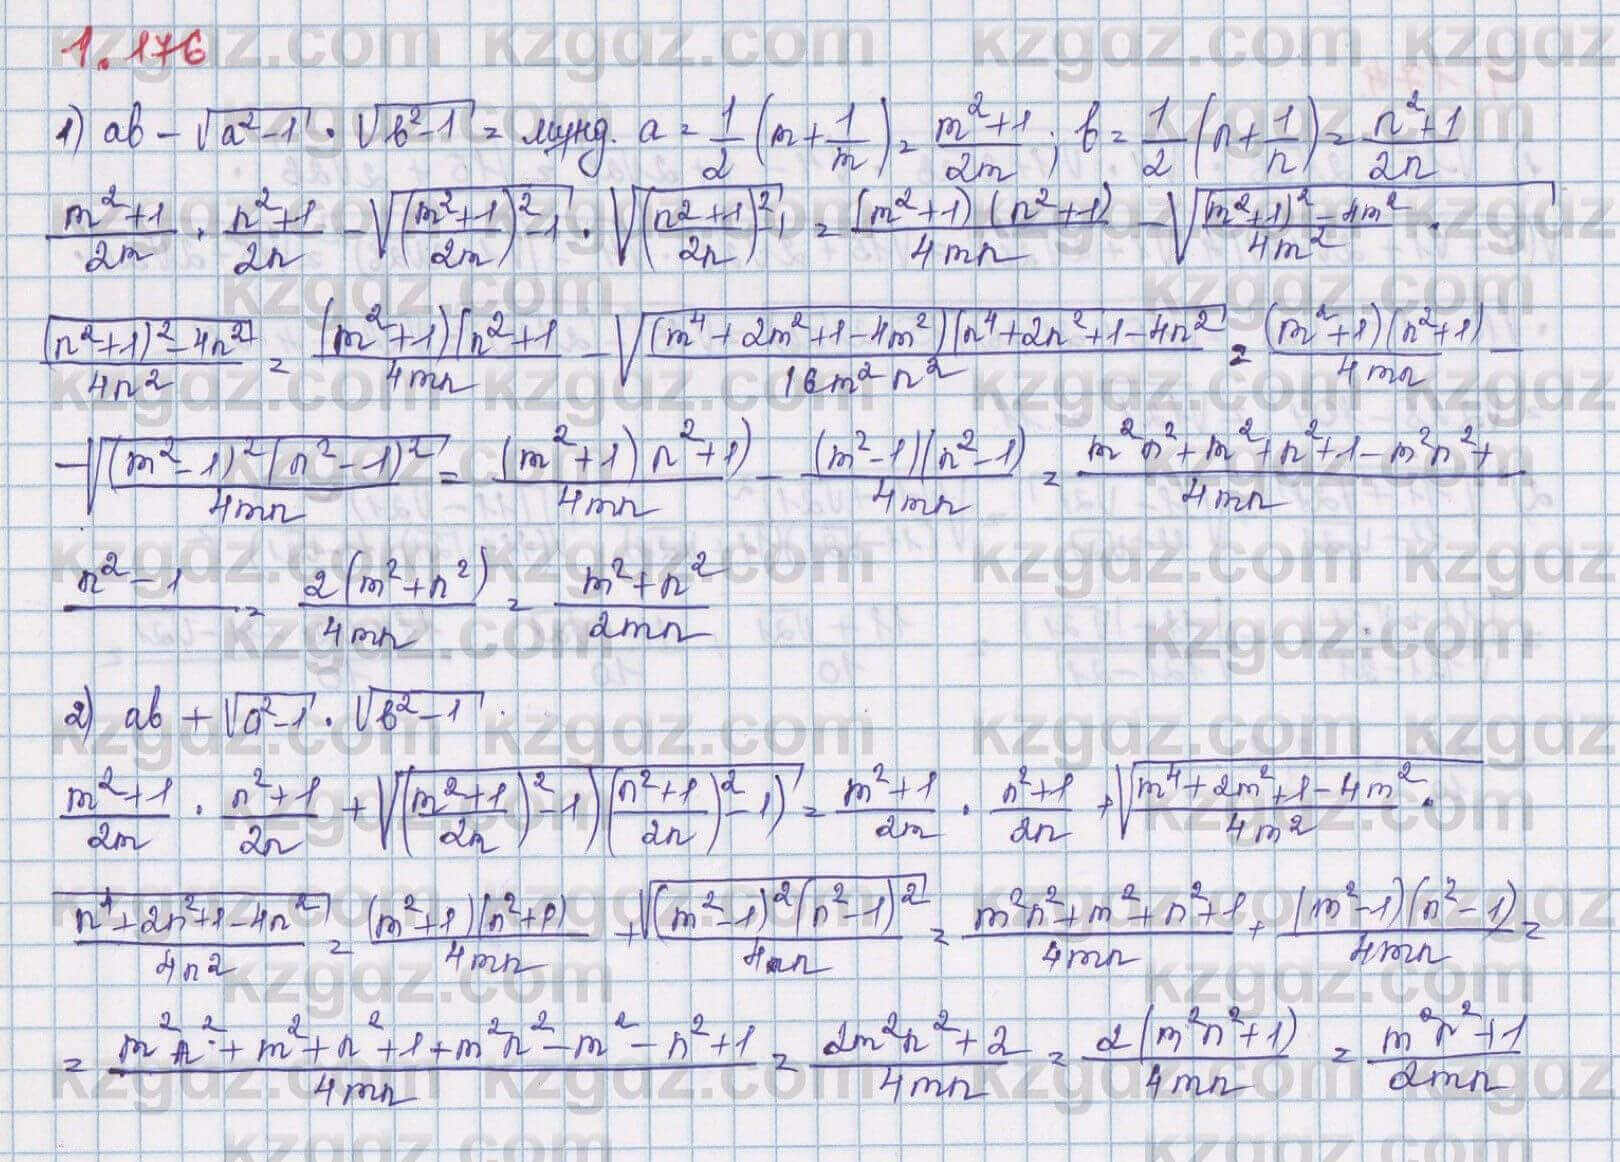 1.176
1) ab - √(a²-1) · √(b²-1) = мұнд. a = 1/2 (m + 1/m) = (m²+1)/2m ; b = 1/2 (n + 1/n) = (n²+1)/2n
(m²+1)/2m · (n²+1)/2n - √(((m²+1)/2m)² - 1) · √(((n²+1)/2n)² - 1) = (m²+1)(n²+1)/4mn - √(((m²+1)² - 4m²)/4m² ·
((n²+1)² - 4n²)/4n²) = (m²+1)(n²+1/4mn - √((m⁴+2m²+1-4m²)(n⁴+2n²+1-4n²/16m²n²) = (m²+1)(n²+1)/4mn -
- √((m²-1)²(n²-1)²)/4mn = (m²+1)n²+1)/4mn - (m²-1)(n²-1)/4mn = m²n²+m²+n²+1-m²n²+/4mn
n²-1 = 2(m²+n²)/4mn = (m²+n²)/2mn
2) ab + √(a²-1) · √(b²-1)
(m²+1)/2m · (n²+1)/2n + √((((m²+1)/2m)²-1)(((n²+1)/2n)²-1)) = (m²+1)/2m · (n²+1)/2n + √((m⁴+2m²+1-4m²)/4m² ·
(n⁴+2n²+1-4n²)/4n²) = (m²+1)(n²+1)/4mn + √((m²-1)²(n²-1)²)/4mn = (m²n²+m²+n²+1)/4mn + (m²-1)(n²-1)/4mn =
= (m²n²+m²+n²+1+m²n²-m²-n²+1)/4mn = (2m²n²+2)/4mn = 2(m²n²+1)/4mn = (m²n²+1)/2mn
kzgdz.com